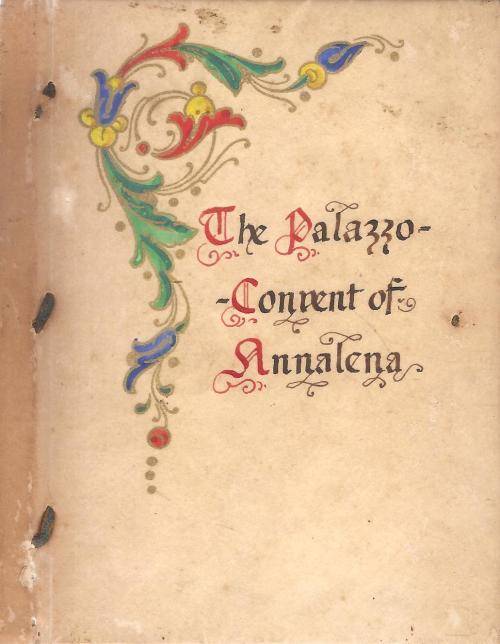 The Palazzo-
-Convent of
Annalena